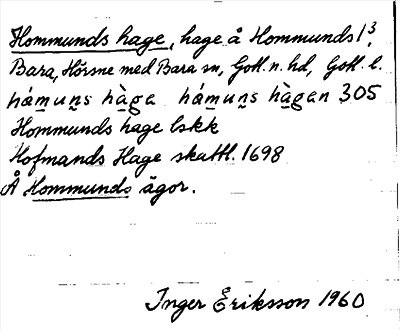 Hommunds hage, hage å Hommunds 1³,
Bara, Hörsne med Bara sn, Gotl. n. hd, Gotl. l.
hámuns hàga hámuns hàgen 305
Hommunds hage lskk
Hofmands Hage skattl. 1698
Å Hommunds ägor.
Inger Eriksson 1960